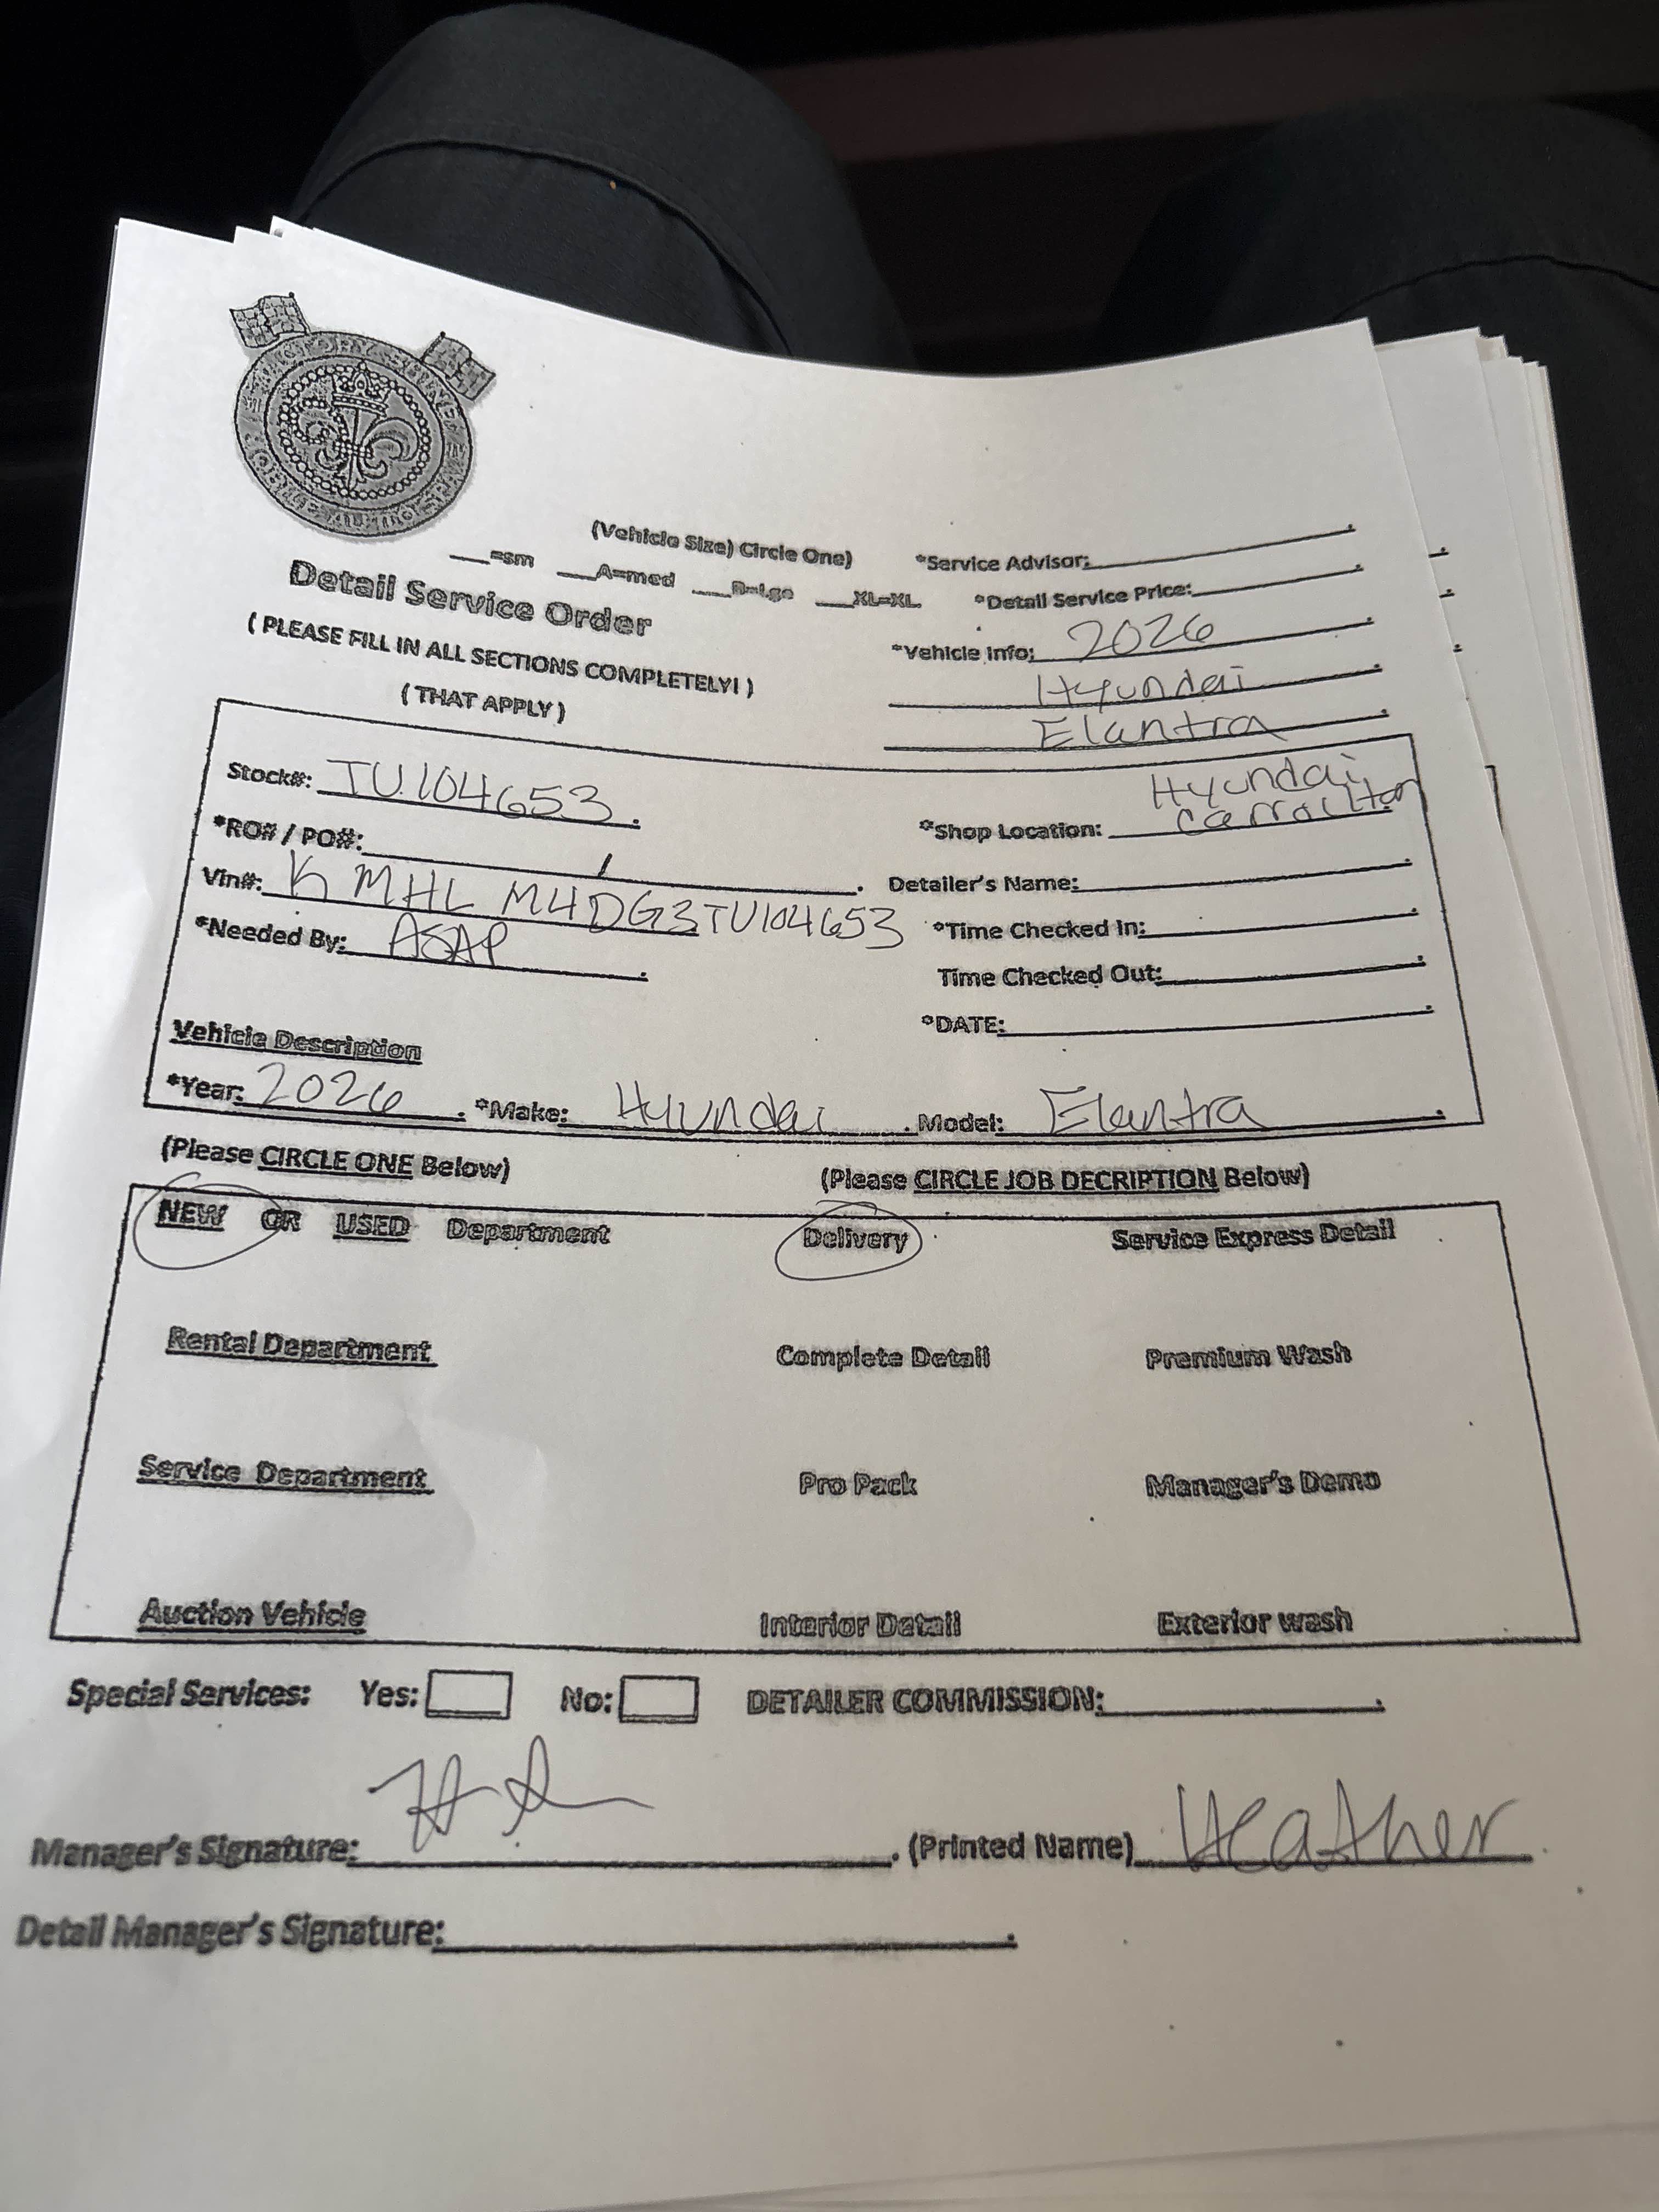 FACTORY SHINE
MOBILE AUTO SPA
(Vehicle Size) Circle One)
___=sm ___A=med ___B=Lge ___XL=XL
Detail Service Order
( PLEASE FILL IN ALL SECTIONS COMPLETELY! )
( THAT APPLY )
*Service Advisor:
*Detail Service Price:
*Vehicle Info: 2026
Hyundai
Elantra
Stock#: TU104653
*RO# / PO#: /
Vin#: KMHLM4DG3TU104653
*Needed By: ASAP
*Shop Location: Hyundai Carrollton
Detailer's Name:
*Time Checked In:
Time Checked Out:
*DATE:
Vehicle Description
*Year: 2026 *Make: Hyundai Model: Elantra
(Please CIRCLE ONE Below) (Please CIRCLE JOB DECRIPTION Below)
NEW OR USED Department Delivery Service Express Detail
Rental Department Complete Detail Premium Wash
Service Department Pro Pack Manager's Demo
Auction Vehicle Interior Detail Exterior wash
Special Services: Yes: No: DETAILER COMMISSION:
Manager's Signature: (Printed Name) Heather
Detail Manager's Signature: